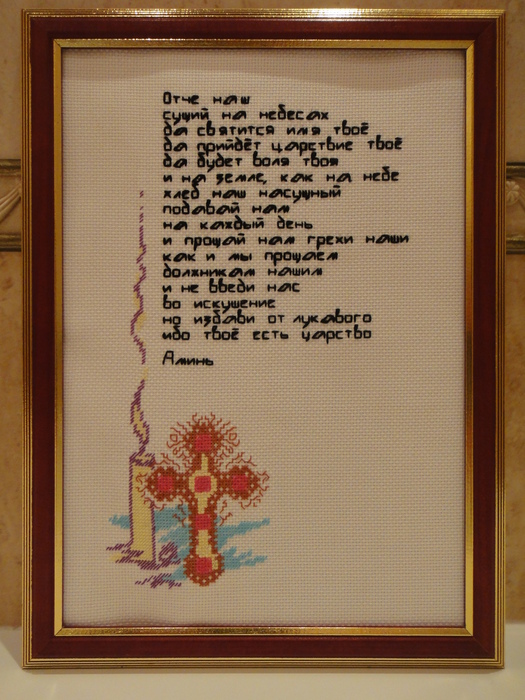 Отче наш
сущий на небесах
да святится имя твоё
да прийдёт царствие твоё
да будет воля твоя
и на земле, как на небе
хлеб наш насущный
подавай нам
на каждый день
и прощай нам грехи наши
как и мы прощаем
должникам нашим
и не введи нас
во искушение
но избави от лукавого
ибо твоё есть царство
Аминь